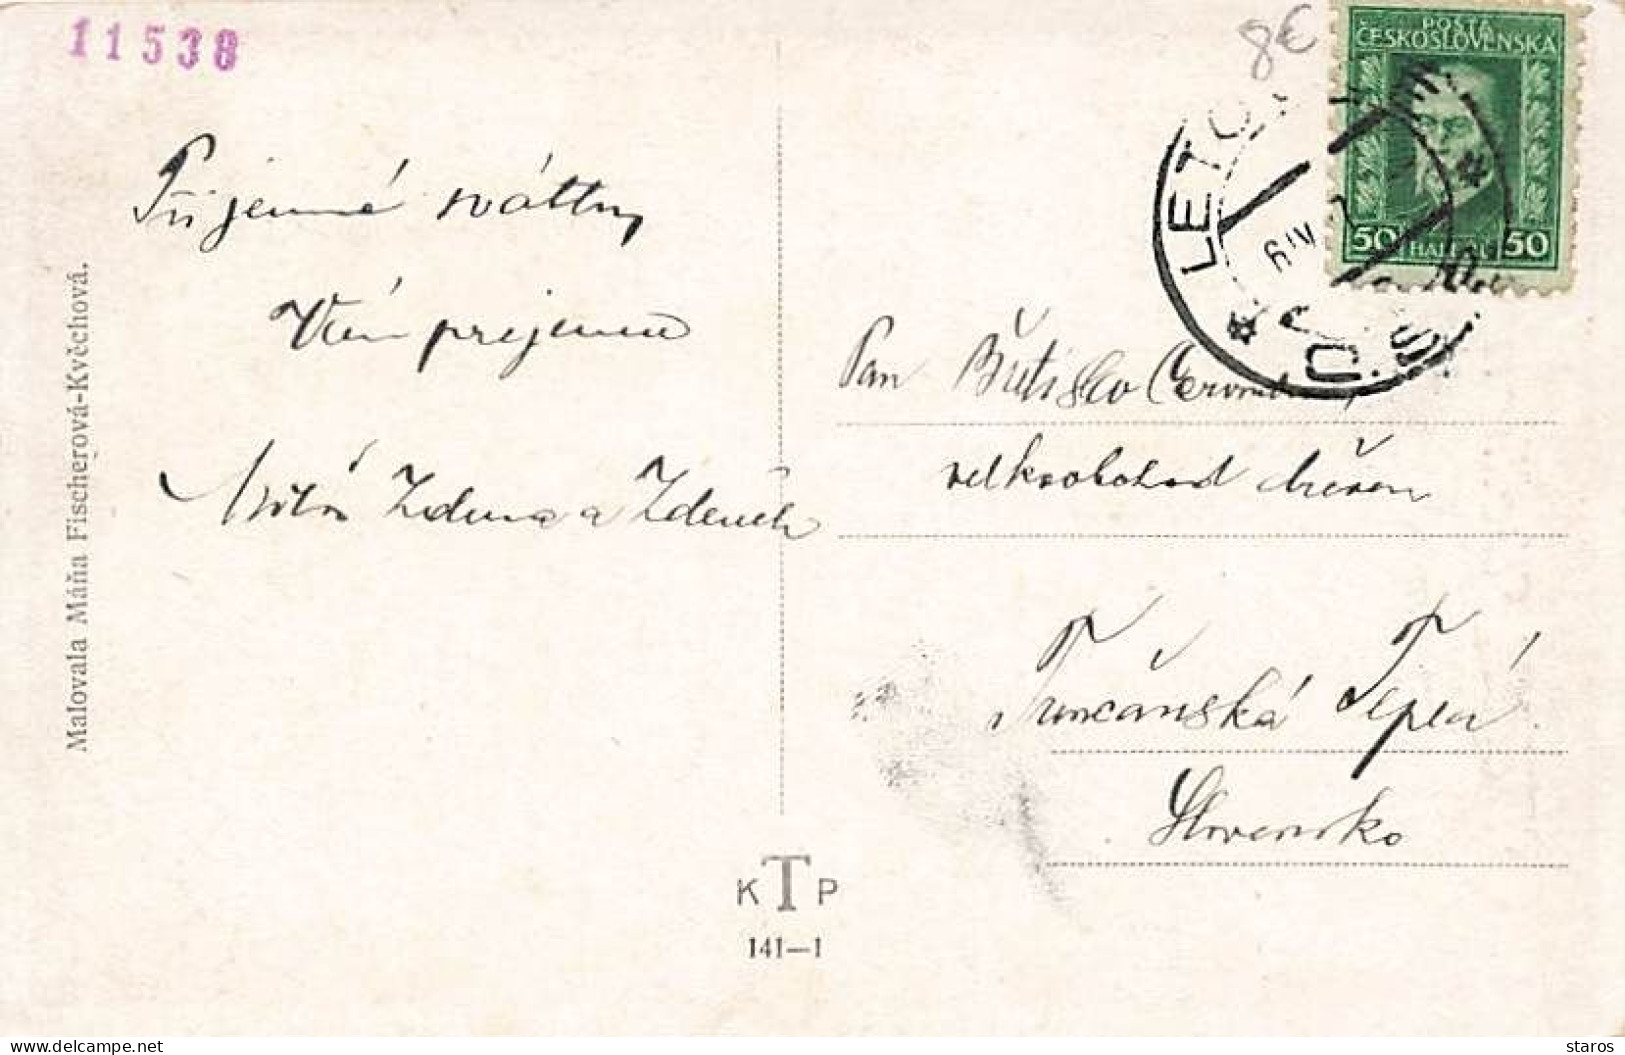 11538
8€
POŠTA
ČESKOSLOVENSKA
50 HALÉŘŮ 50
LETO
6 IV
Příjemné svátky
Vám přejeme
Zdena a Zdeněk
Malovala Máňa Fischerová-Kvěchová.
Pan Břetislav
velkoobchod dřevem
Trenčanská Teplá
Slovensko
K T P
141—1
delcampe.net
staros